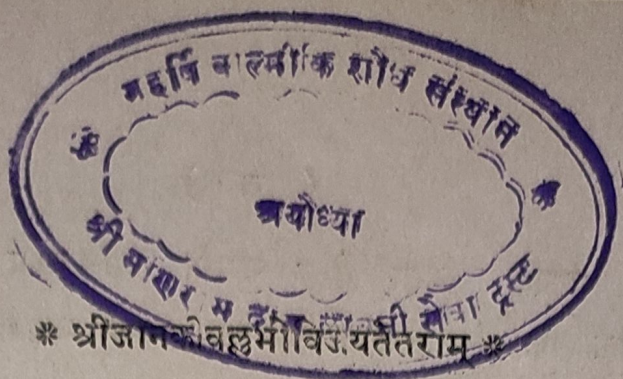 महर्षि वाल्मीकि शोध संस्थान
अयोध्या
श्री सेवा ट्रस्ट
* श्रीजानकीवल्लभो विजयतेतराम् *